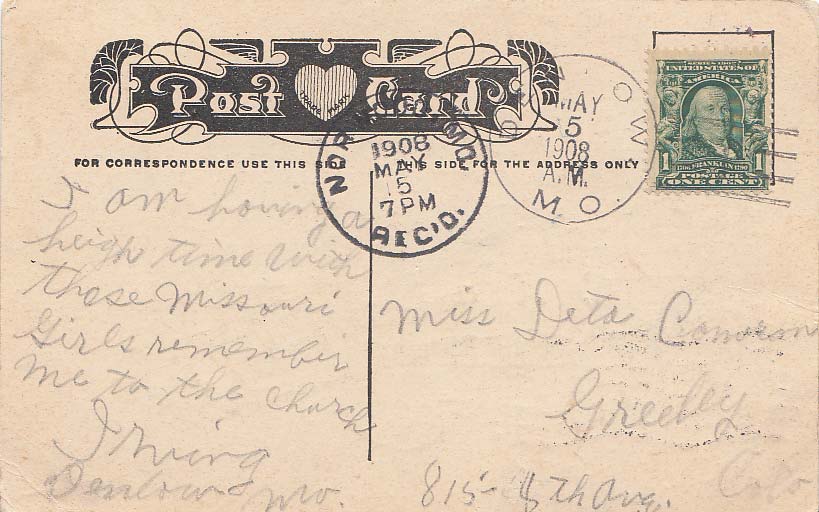 Post Card
FOR CORRESPONDENCE USE THIS SIDE FOR THE ADDRESS ONLY
MO.
1908
MAY
5
7 PM
REC'D.
MAY
5
1908
A.M.
MO.
SERIES 1902
UNITED STATES OF
AMERICA
FRANKLIN
1 POSTAGE 1
ONE CENT
I am having a
heigh time with
these Missouri
Girls remember
me to the church
Irving
Denlow Mo.
Miss Deta
Greeley
815 - 8th Ave. Colo